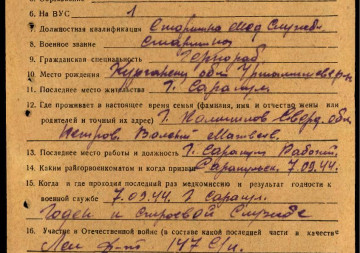 6. На ВУС 1
7. Должностная квалификация Старшина мед службы
8. Военное звание старшина
9. Гражданская специальность
10. Место рождения обл
11. Последнее место жительства г. Сарапул
12. Где проживает в настоящее время семья (фамилия, имя и отчество жены или
родителей и точный их адрес) Сверд. обл.
Петров
13. Последнее место работы и должность г. Сарапул Рабочий
14. Каким райгорвоенкоматом и когда призван Сарапульск. 7.09.44.
15. Когда и где проходил последний раз медкомиссию и результат годности к
военной службе 7.09.44 г. Сарапул.
Годен к строевой службе
16. Участие в Отечественной войне (в составе какой последней части и качестве
Лен ф-т 147